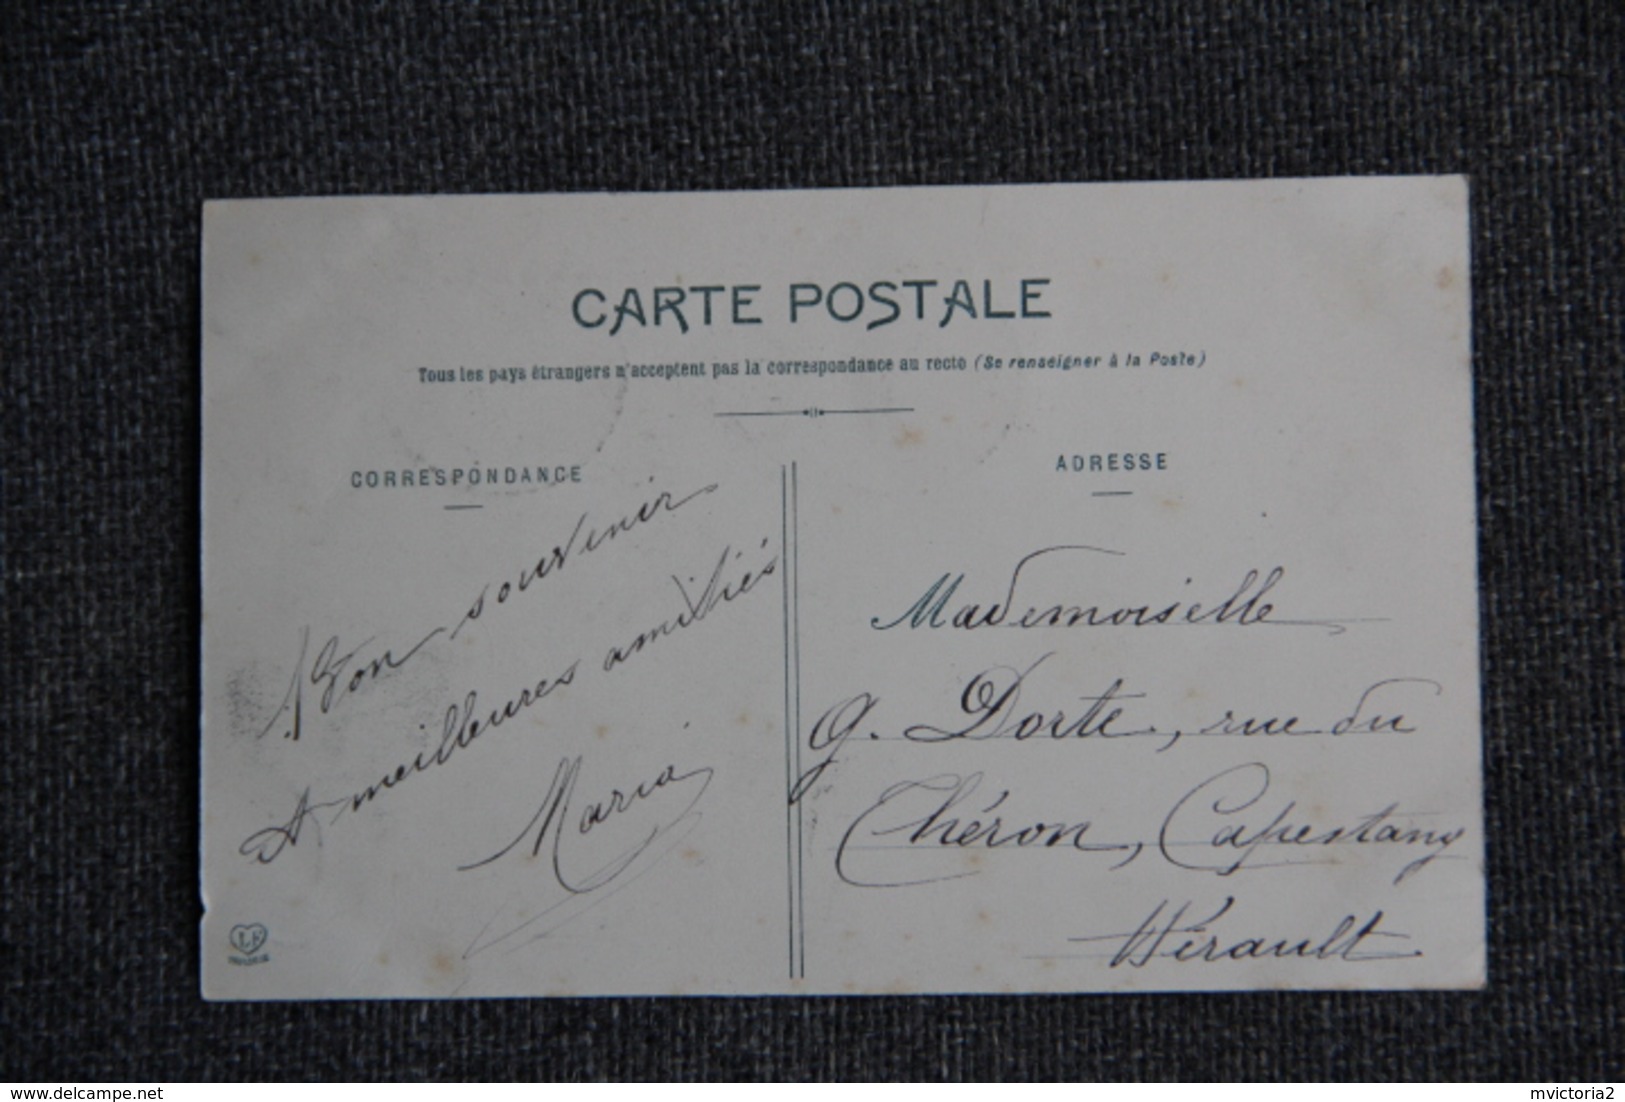 CARTE POSTALE
Tous les pays étrangers n'acceptent pas la correspondance au recto (Se renseigner à la Poste)
CORRESPONDANCE
Bon souvenir
et meilleures amitiés
Maria
ADRESSE
Mademoiselle
G. Dorte, rue du
Théron, Capestang
Hérault.
LF
delcampe.net
mvictoria2